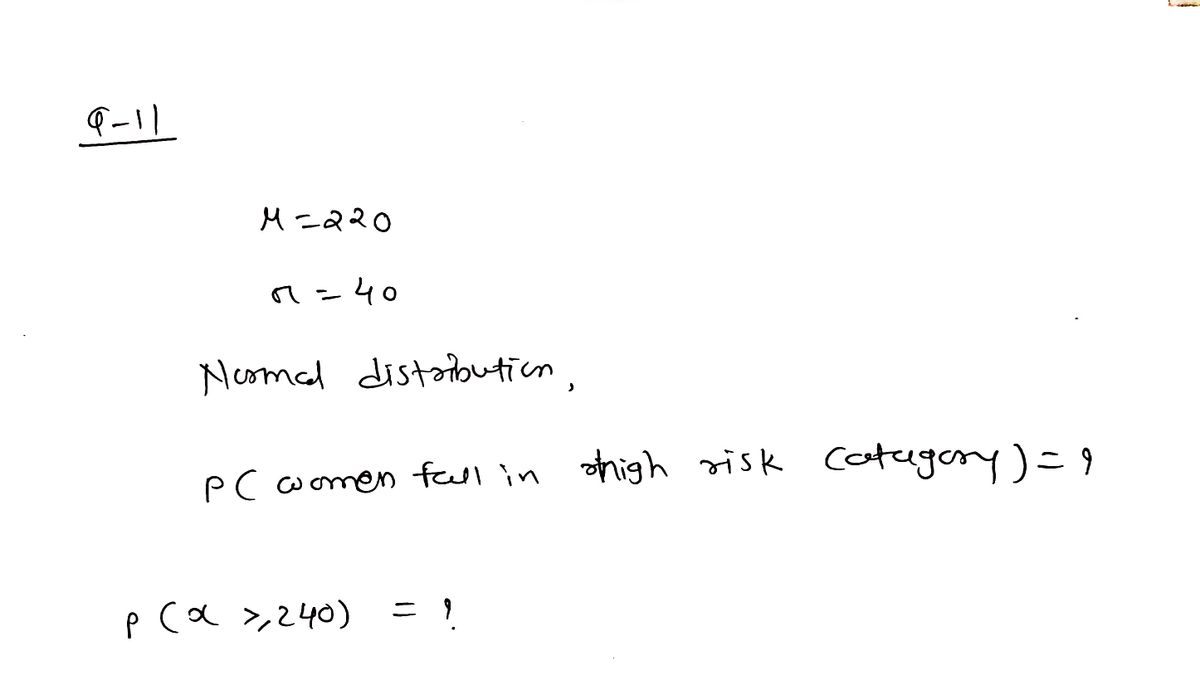 Q-11
μ = 220
σ = 40
Normal distribution,
P( women fall in high risk category) = ?
P (x ≥ 240) = ?